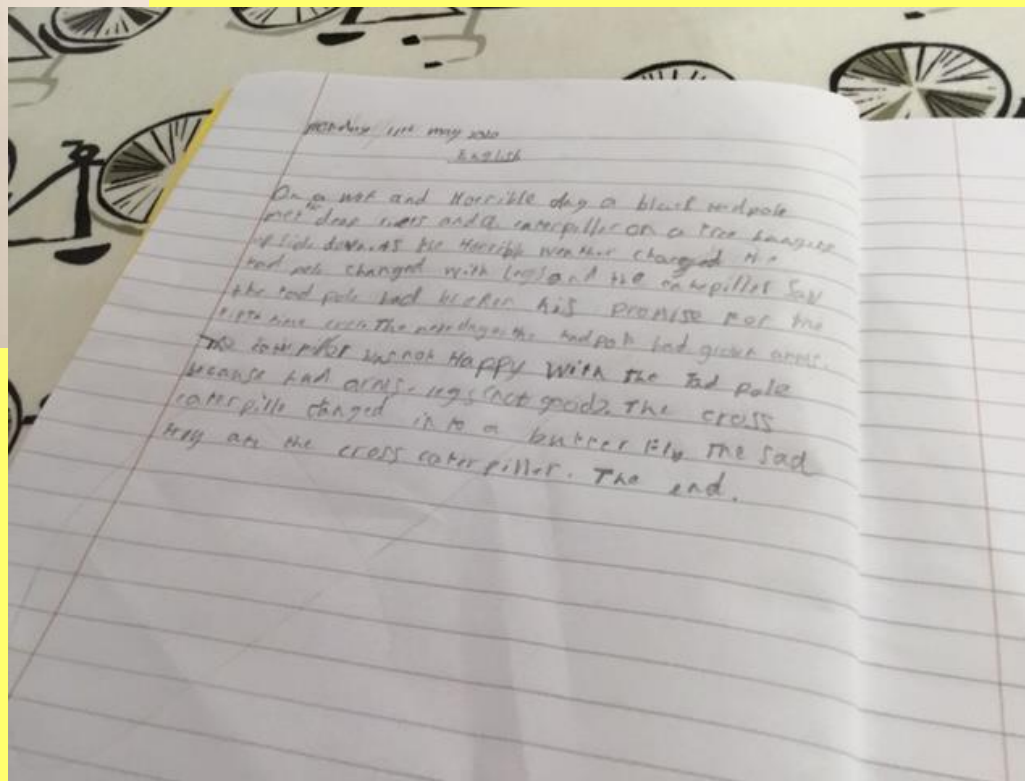 Monday 11th May 2020
English
On a wet and Horrible day a black tadpole
met deep rivers and a caterpiller on a tree hanging
up side down. As the Horrible weather changed the
tad pole changed with legs and the caterpiller Say
the tad pole had broken his promise for the
time the tadpole had grown arms.
The caterpiller was not Happy with the Tad pole
because had arms. legs (not good). The cross
caterpille changed in to a butterfly The Sad
they ate the cross caterpiller. The end.